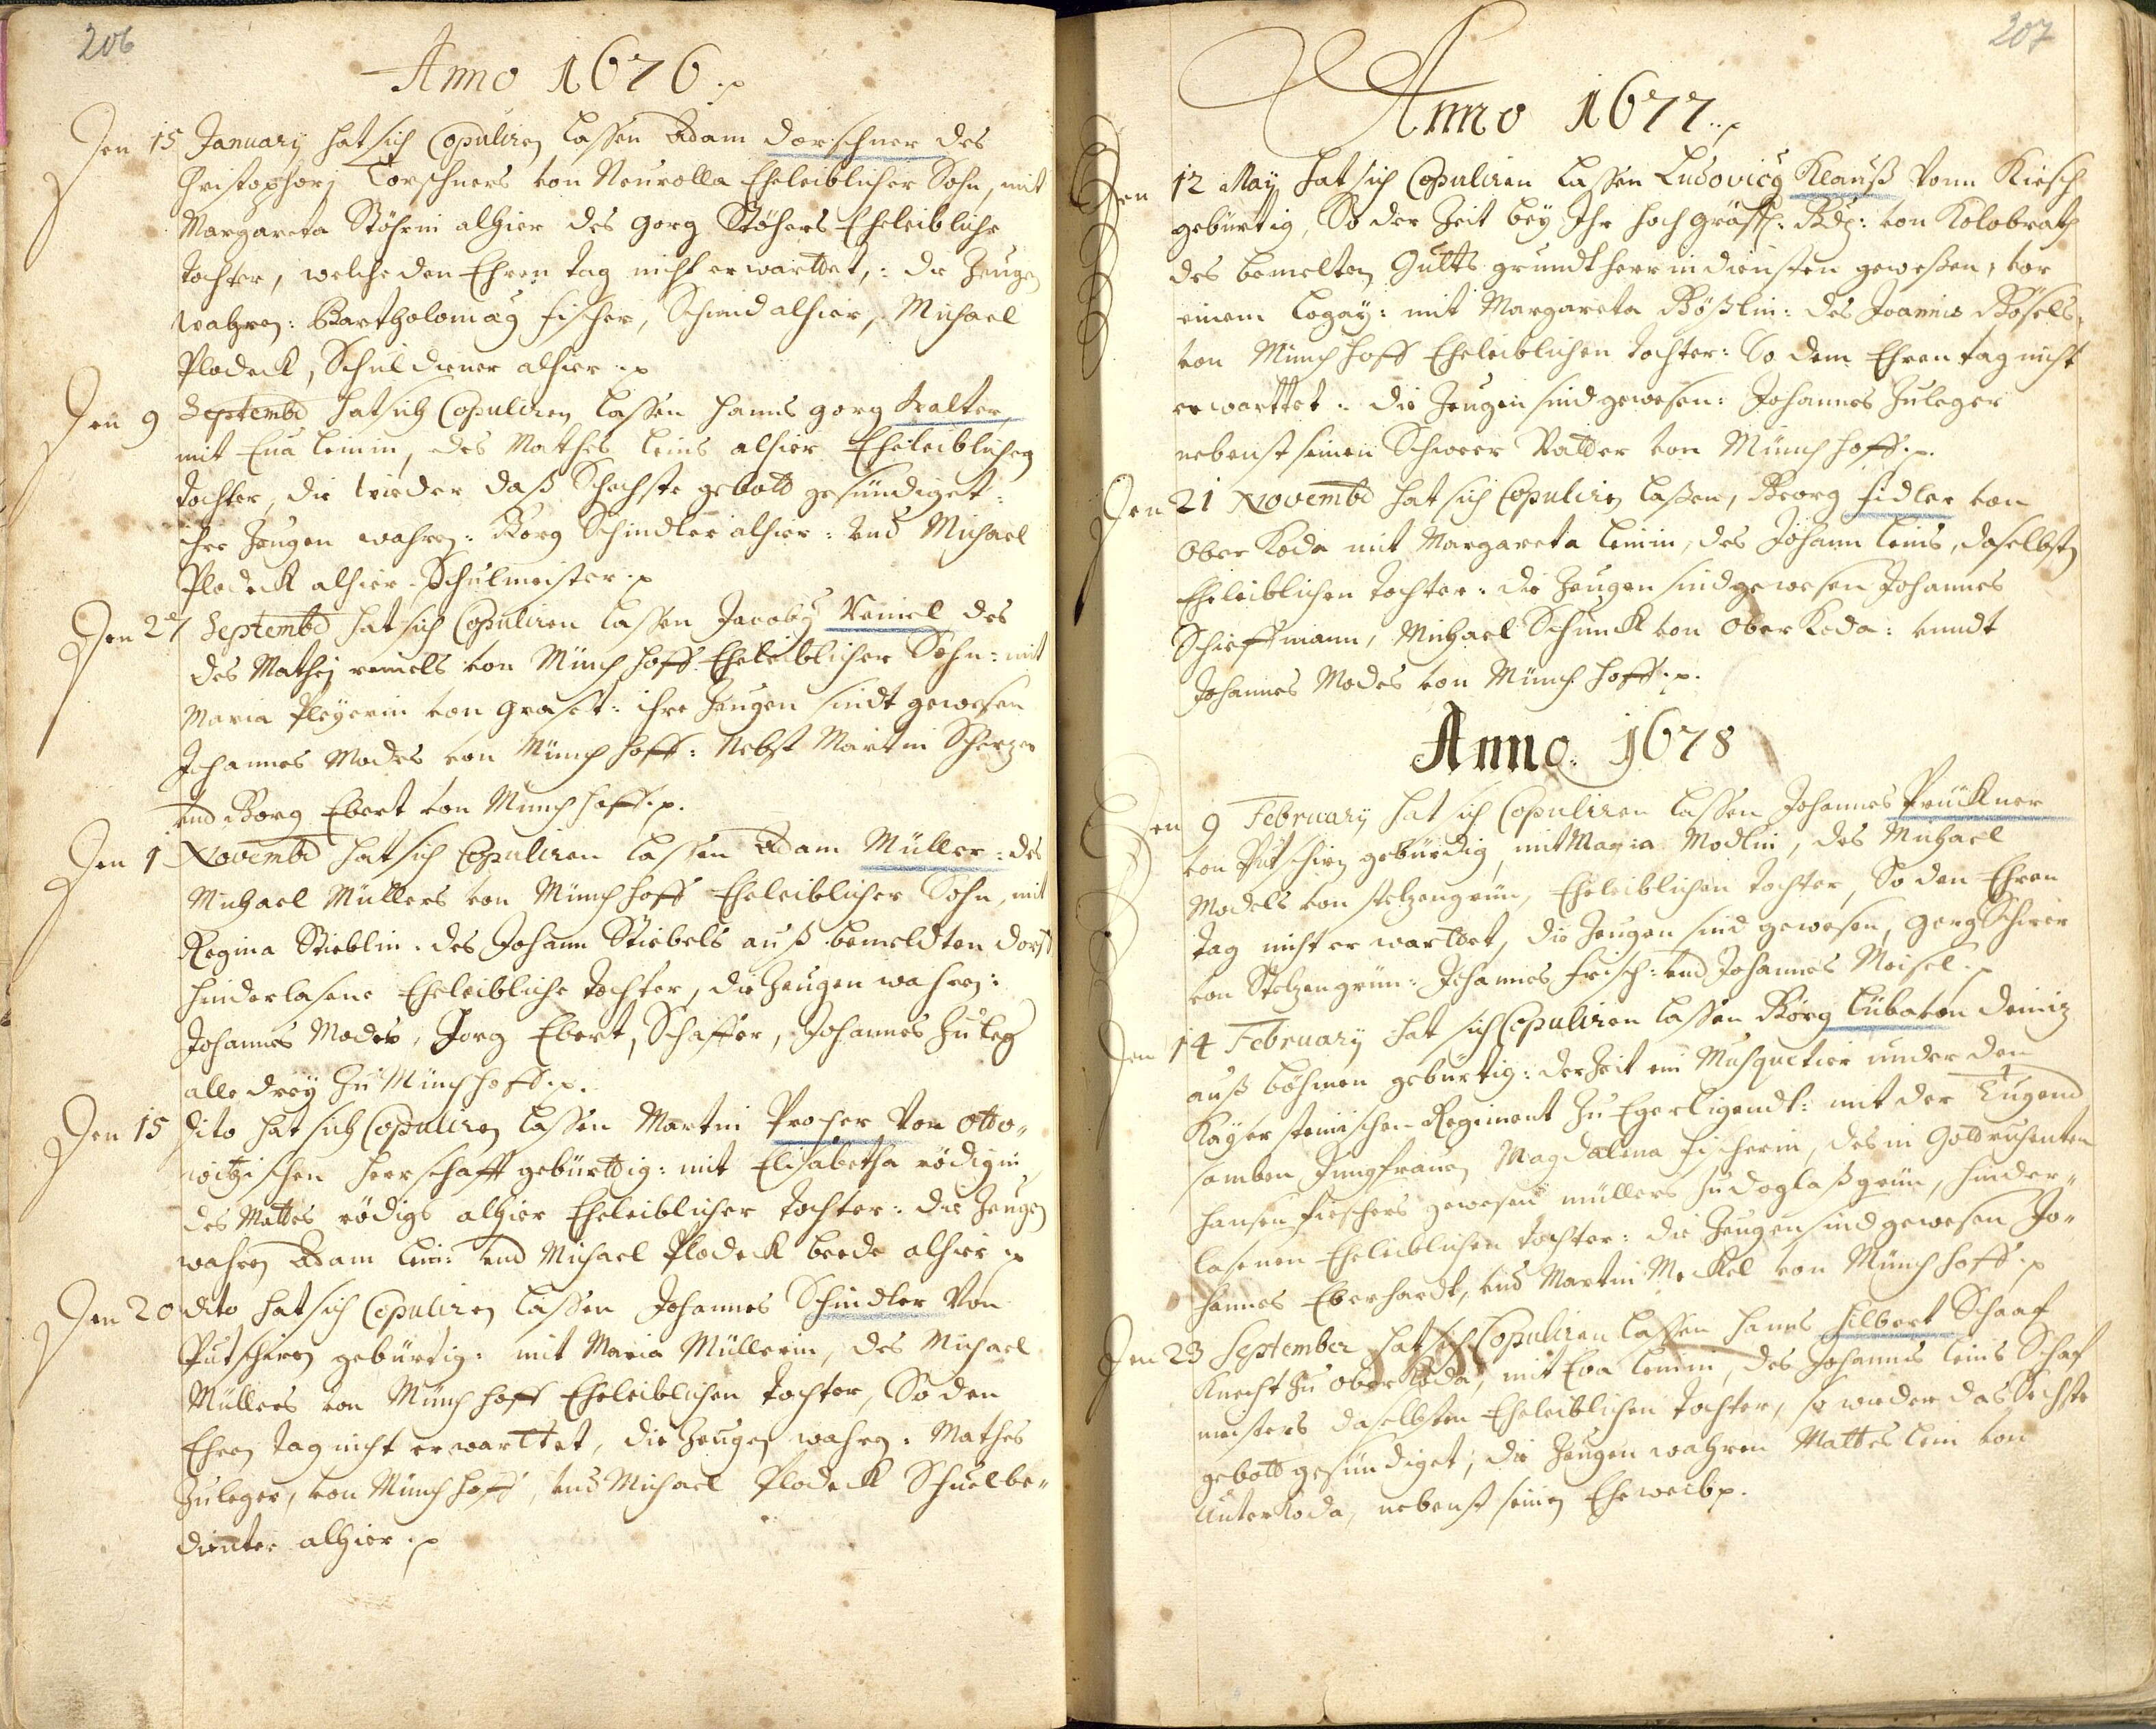 206
Anno 1676 .p
Den 15 January hat sich Copuliren lassen Adam Dorschner des
Christophorj Torschners von Neurolla Eheleiblicher Sohn, mit
Margareta Stöhrin alhier des Gorg Stöhers Eheleibliche
Tochter, welche den Ehren tag nicht erwarttet,: die Zeugen
wahren: Bartholomæg Fischer, Schmid alhier, Michael
Plodeck, Schuldiener alhier .p
Den 9 Septembr hat sich Copuliren lassen Hanns Gorg Walter,
mit Eua Leinin, des Mathes Leins alhier Eheleiblichen
Tochter, die wieder daß Sechste gebott gesündiget:
ihre Zeugen wahren: Görg Schindler alhier: und Michael
Plodeck alhier Schulmeister .p
Den 27 Septembr hat sich Copuliren lassen Jacobg Remel des
des Mathej remels von Münchhoff Eheleiblicher Sohn: mit
Maria Pleyerin von Graset: ihre Zeugen sindt gewesen
Johannes Modes von Münchhoff: Nebst Martin Scherzer
und Görg Ebert von Münchhoff .p.
Den 1 Novembr hat sich Copuliren lassen Adam Müller: des
Michael Müllers von Münchhoff Eheleiblicher Sohn, mit
Regina Stieblin. des Johann Stiebels auß bemeldten dorff
hinderlasene Eheleibliche Tochter, die Zeugen wahren:
Johannes Modes, Jorg Ebert, Schaffer, Johannes Zuleg
alle drey Zu Münchhoff .p.
Den 15 dito hat sich Copuliren lassen Martin Procher von Otto„
witzischen Herrschafft gebürttig: mit Elisabetha rödigin
des Mattes rödigs alhier Eheleiblicher Tochter: die Zeugen
wahren Adam Lein: und Michael Plodeck beede alhier .p
Den 20 dito hat sich Copuliren lassen Johannes Schindler von
Putschiren gebürtig: mit Maria Müllerin, des Michael
Müllers von Münchhoff Eheleiblichen Tochter, So den
Ehren tag nicht erwarttet, die Zeugen wahren: Mathes
Zuleger, von Münchhoff, und Michael Plodeck Schuelbe„
dienter alhier .p
207
Anno 1677 .p
Den 12 May hat sich Copuliren lassen Ludovicg Klauß vonn Kiesch
gebürtig, So der Zeit bey Ihr hoch gräffl: von Kolobrath
des bemelten Gults grundtherr in diensten geweßen, vor
einem Logay: mit Margareta Bößlin: des Joannis Bösels
von Münchhoff Eheleiblichen Tochter: So dem Ehren tag nicht
erwarttet. die Zeugen sind gewesen: Johannes Zuleger
nebenst seinen Schweer Vatter von Münchhoff .p.
Den 21 Novembr hat sich Copuliren laßen, Georg Fidler von
Ober Koda mit Margareta Leinin, des Johann Leins, daselbsten
Eheleiblichen Tochter: die Zeugen sind gewesen Johannes
Schieffmann, Michael Schunck von Ober Koda: unndt
Johannes Modes von Münchhoff .p.
Anno. 1678
Den 9 February hat sich Copuliren lassen Johannes Prückner
von Putschirn gebürdig, mit Maria Modlin, des Michael
Models von Stelzengrün, Eheleiblichen Tochter, So den Ehren
tag nicht erwarttet, die Zeugen sind gewesen, Gerg Schirer
von Stelzengrün: Johannes Frisch: und Johannes Meisel .p
Den 14 February hat sich Copuliren lassen Görg Lüba von Deiniz
auß böhmen gebürtig: der Zeit ein Musquetier under den
Kayserstemischen Regiment Zu Eger ligendt: mit der Tugend
samben Jungfrauen Magdalena Fischerin, des in Gott ruhenten
Hansen Fieschers gewesen müllers Zu doglaßgrün, hinder„
lasenen Eheleiblichen Tochter: die Zeugen sind gewesen Jo„
hannes Eberhardt, und Martin Meckel von Münchhoff .p
Den 23 September hat sich Copuliren lassen Hanns Hilbert Schaaf
Knecht zu Ober Koda, mit Eva Leinin, des Johannes Leins Schaf
meisters daselbsten Eheleiblichen Tochter, so wieder das Sechste
gebott gesündiget, die Zeugen wahren Mattes Lein von
Unter Koda, nebenst seinen Eheweib p.